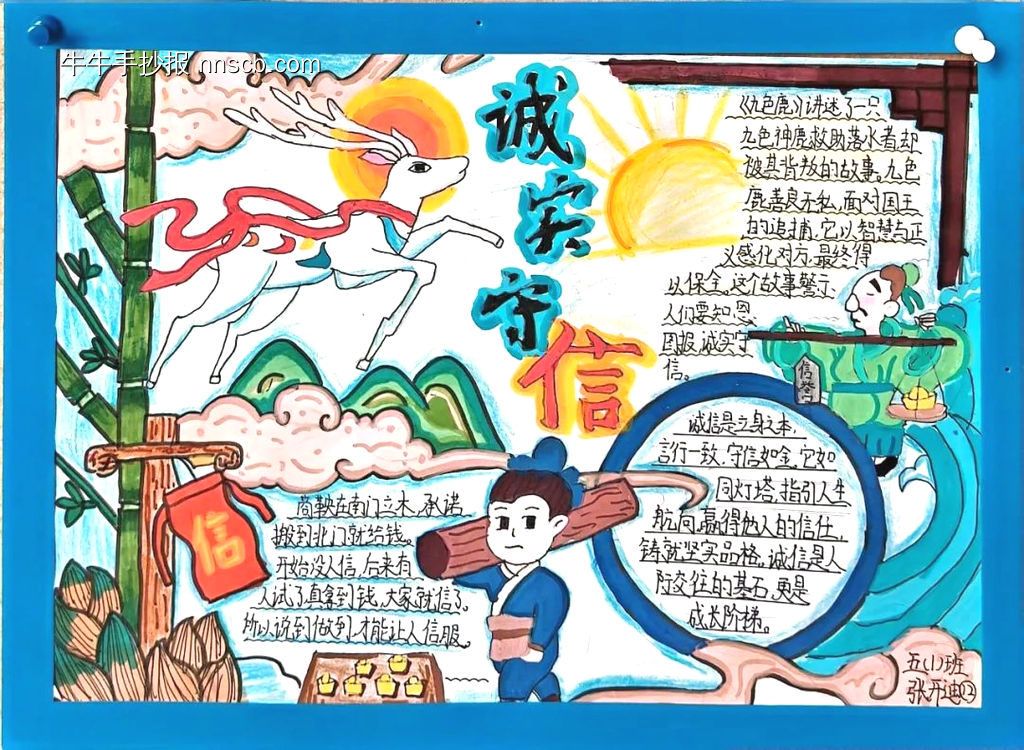 牛牛手抄报 nnscb.com
诚实守信
《九色鹿》讲述了一只
九色神鹿救助落水者却
被其背叛的故事。九色
鹿善良无私,面对国王
的追捕,它以智慧与正
义感化对方,最终得
以保全。这个故事警示
人们要知恩
图报,诚实守
信。
信誉
诚信是立身之本,
言行一致,守信如金。它如
同灯塔,指引人生
航向,赢得他人的信任,
铸就坚实品格。诚信是人
际交往的基石,更是
成长阶梯。
信
商鞅在南门立木,承诺
搬到北门就给钱。
开始没人信,后来有
人试了,真拿到钱,大家就信了。
所以说到做到,才能让人信服。
五(1)班